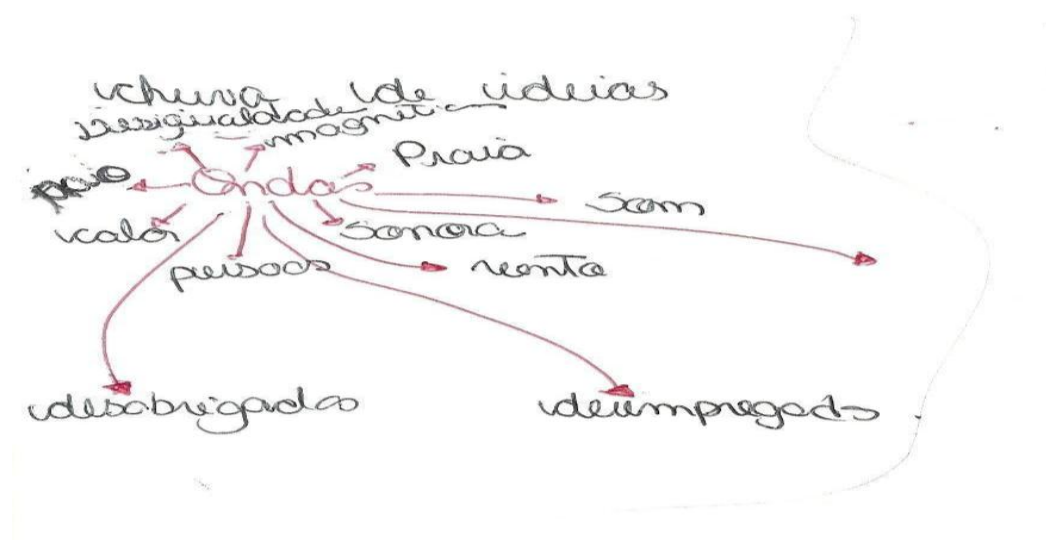 chuva de ideias
Desigualdade
magnética
Praia
Ondas
Som
calor
Sonora
pessoas
vento
desabrigados
desempregado